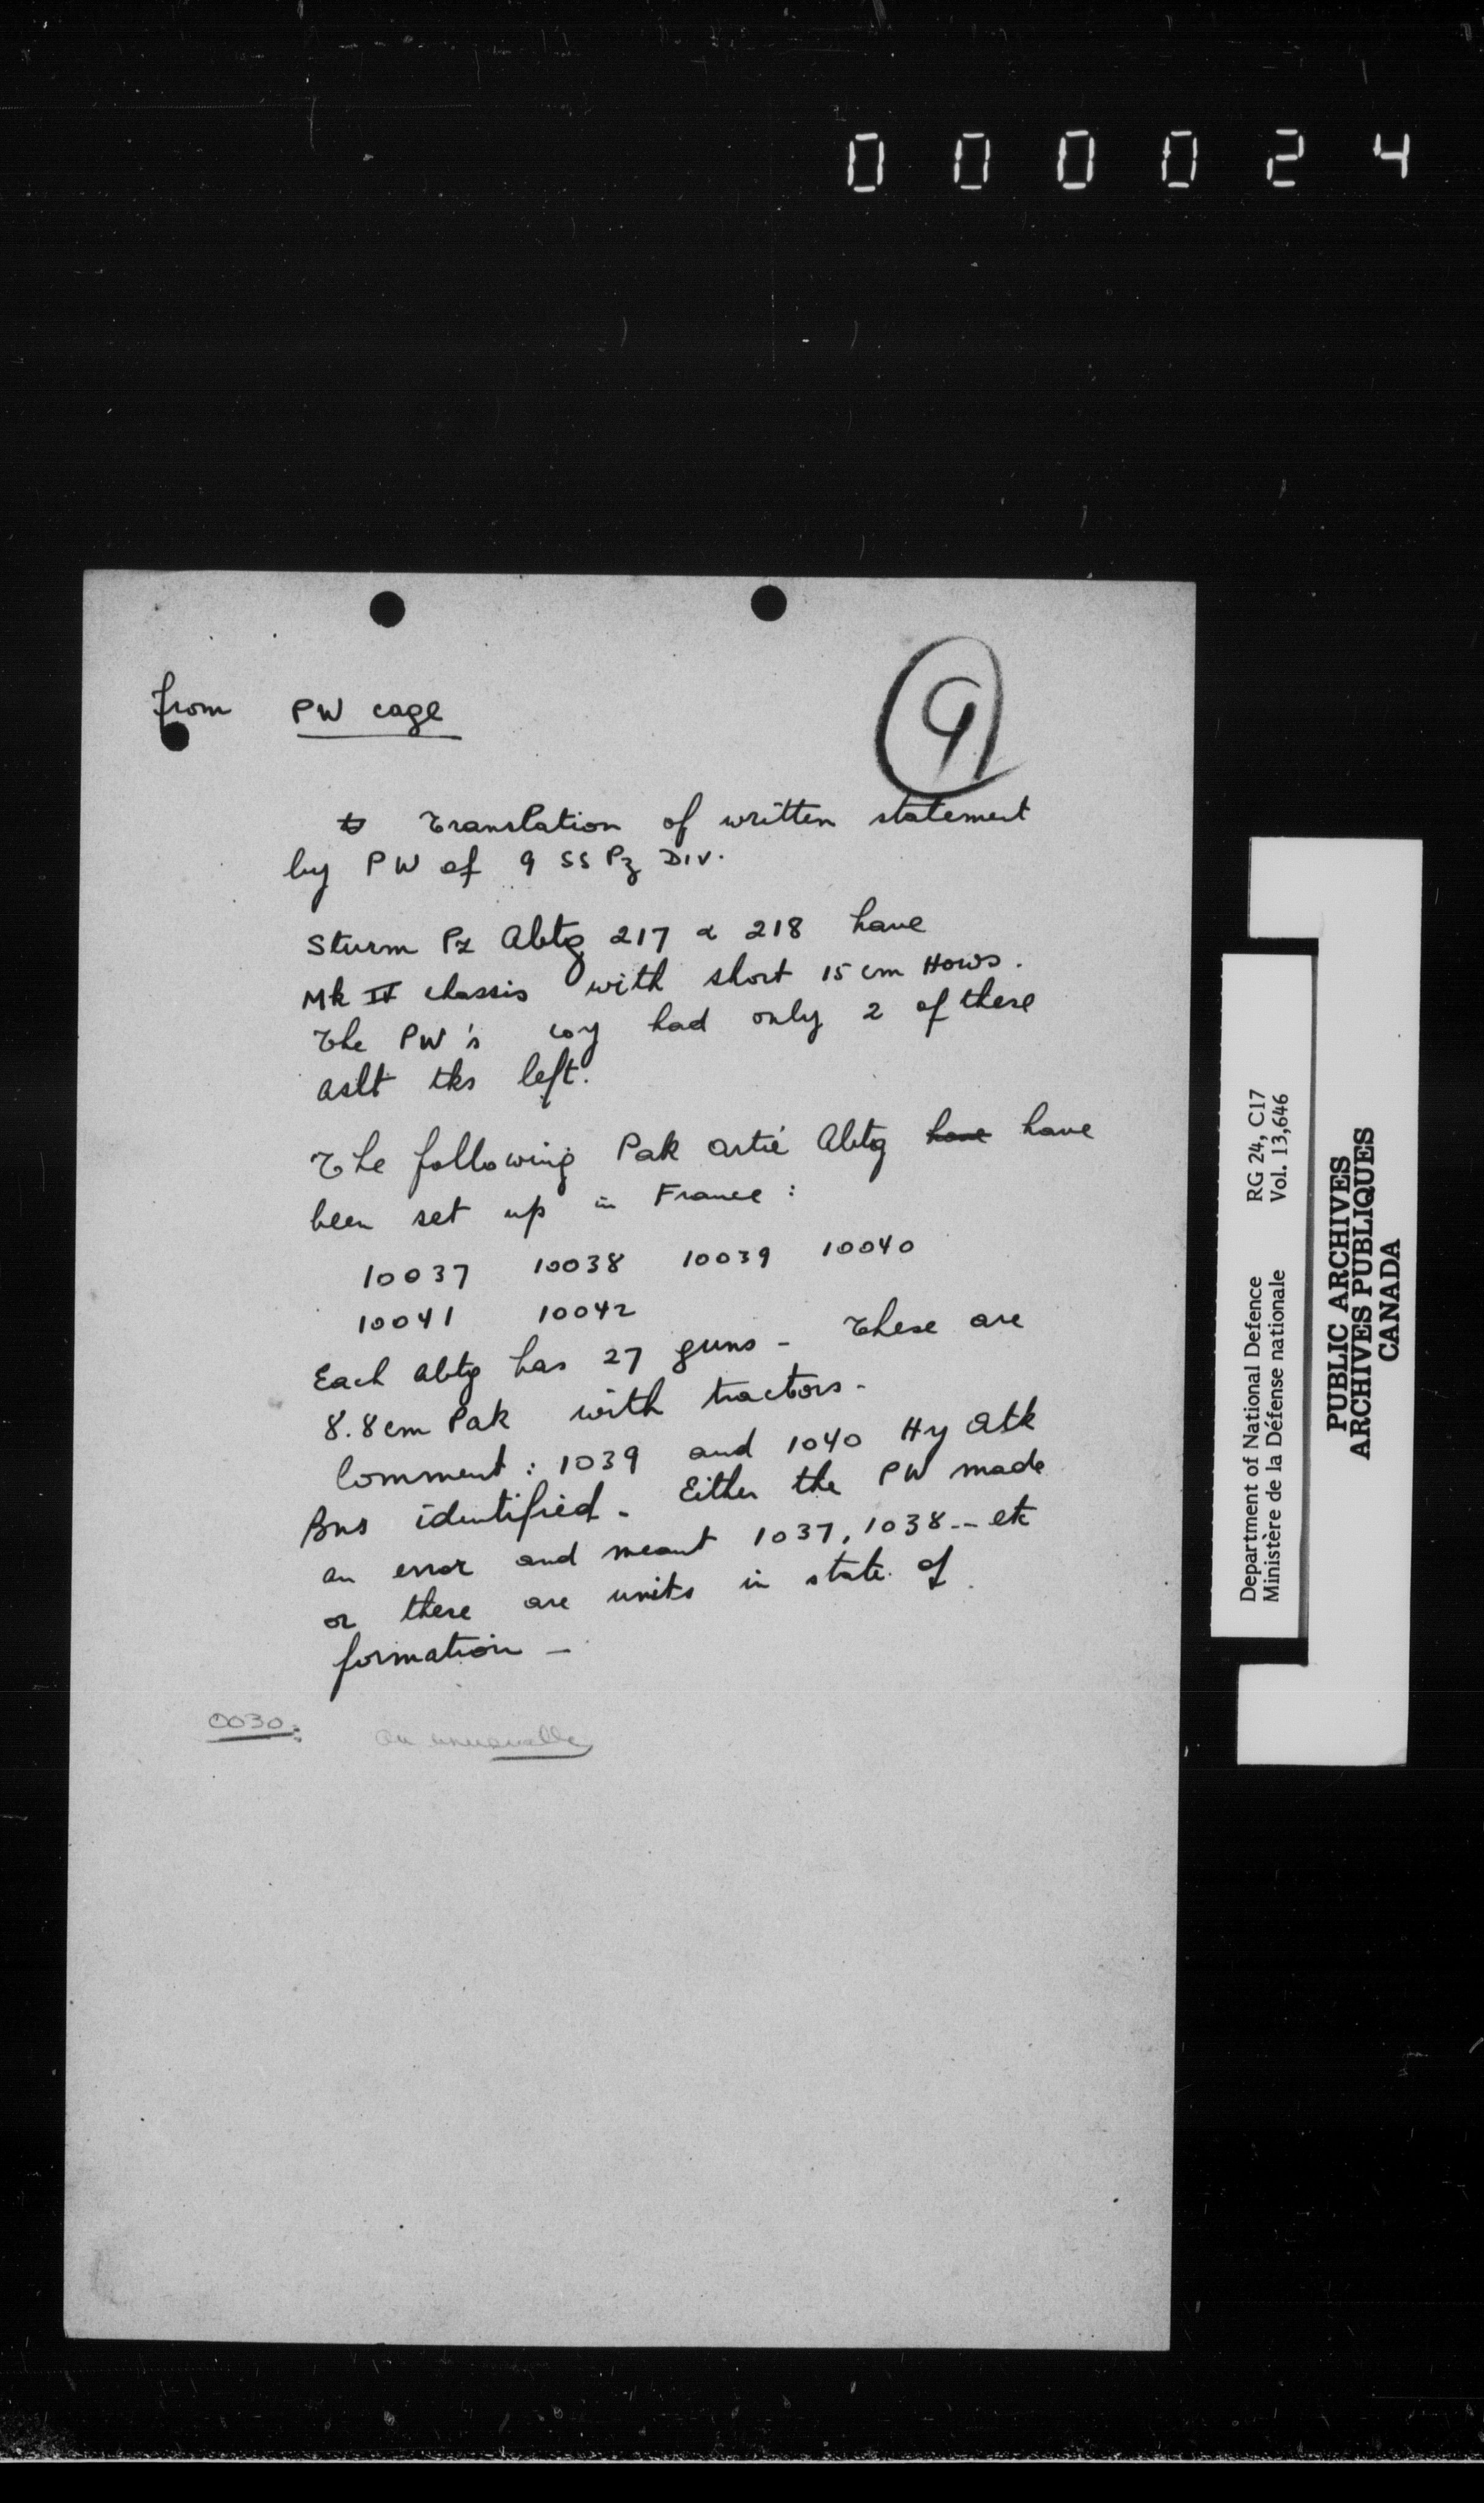 000024
from PW cage
9
to Translation of written statement
by PW of 9 SS Pz Div.
Sturm Pz Abtg 217 & 218 have
Mk IV chassis with short 15 cm Hows.
The PW's coy had only 2 of these
aslt tks left.
The following Pak artie Abtg have have
been set up in France :
10037 10038 10039 10040
10041 10042
Each abtg has 27 guns - These are
8.8 cm Pak with tractors -
Comment : 1039 and 1040 Hy Atk
Bns identified - Either the PW made
an error and meant 1037, 1038 -- etc
or these are units in state of
formation -
0030:
Department of National Defence RG 24, C17
Ministère de la Défense nationale Vol. 13,646
PUBLIC ARCHIVES
ARCHIVES PUBLIQUES
CANADA